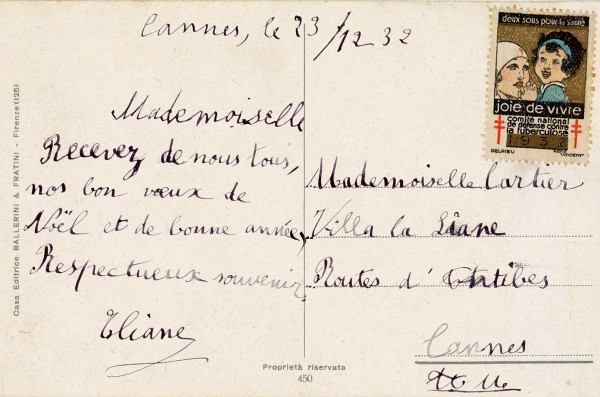 Cannes, le 23/12 32
Mademoiselle
Recevez de nous tous,
nos bon vœux de
Noël et de bonne année,
Respectueux souvenir
Eliane
Mademoiselle Cartier
Villa la Liane
Routes d' Antibes
Cannes
A. M.
deux sous pour la santé
joie de vivre
comité national
de défense contre
la tuberculose
1932
DELRIEU
Casa Editrice BALLERINI & FRATINI - Firenze (125)
Proprietà riservata
450